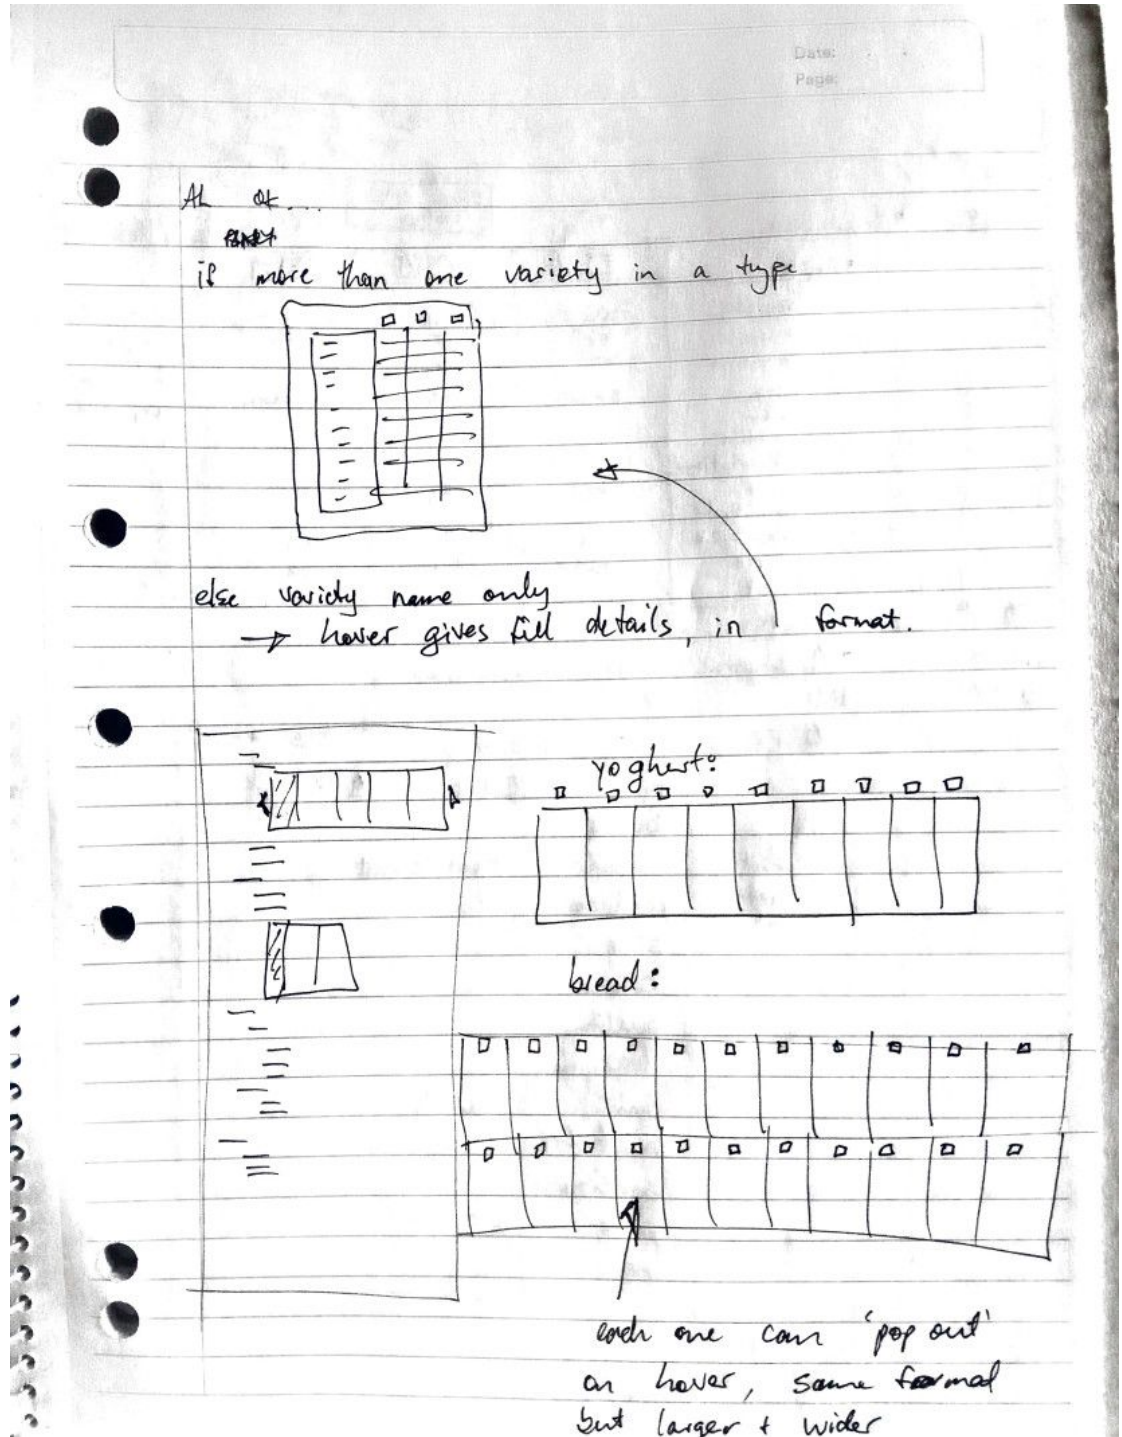 Date:
Page:
Ah ok...
if more than one variety in a type
else variety name only
→ hover gives full details, in format.
yoghurt:
bread:
each one can 'pop out'
on hover, same format
but larger + wider